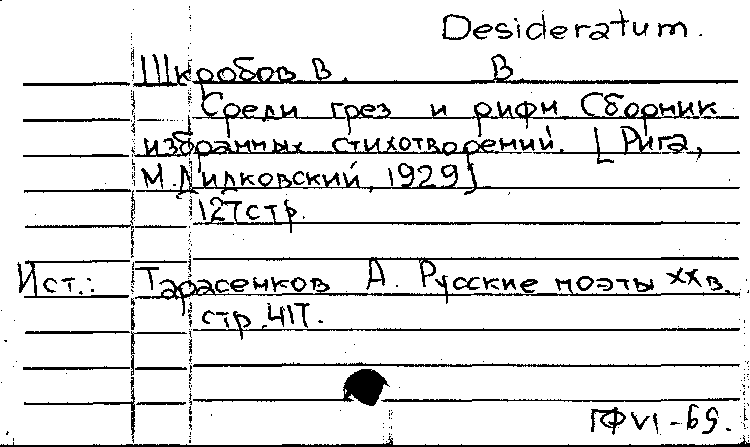 Desideratum.
Шкробов В. В.
Среди грез и рифм Сборник
избранных стихотворений. [Рига,
М. Дидковский, 1929]
127 стр.
Ист.: Тарасенков А. Русские поэты XX в.
стр. 417.
ПФ VI - 69.